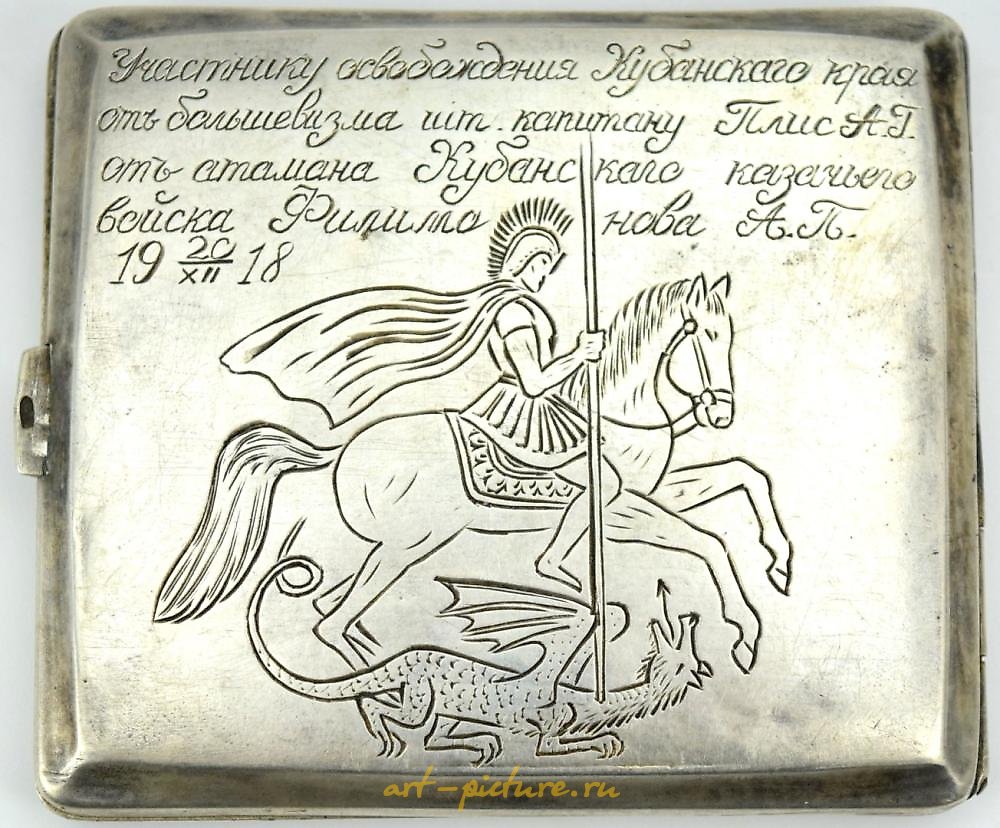 Участнику освобождения Кубанскаго края
отъ большевизма шт. капитану Плис А.Г.
отъ атамана Кубанскаго казачьего
войска Филимонова А.П.
19 20/XII 18
art-picture.ru